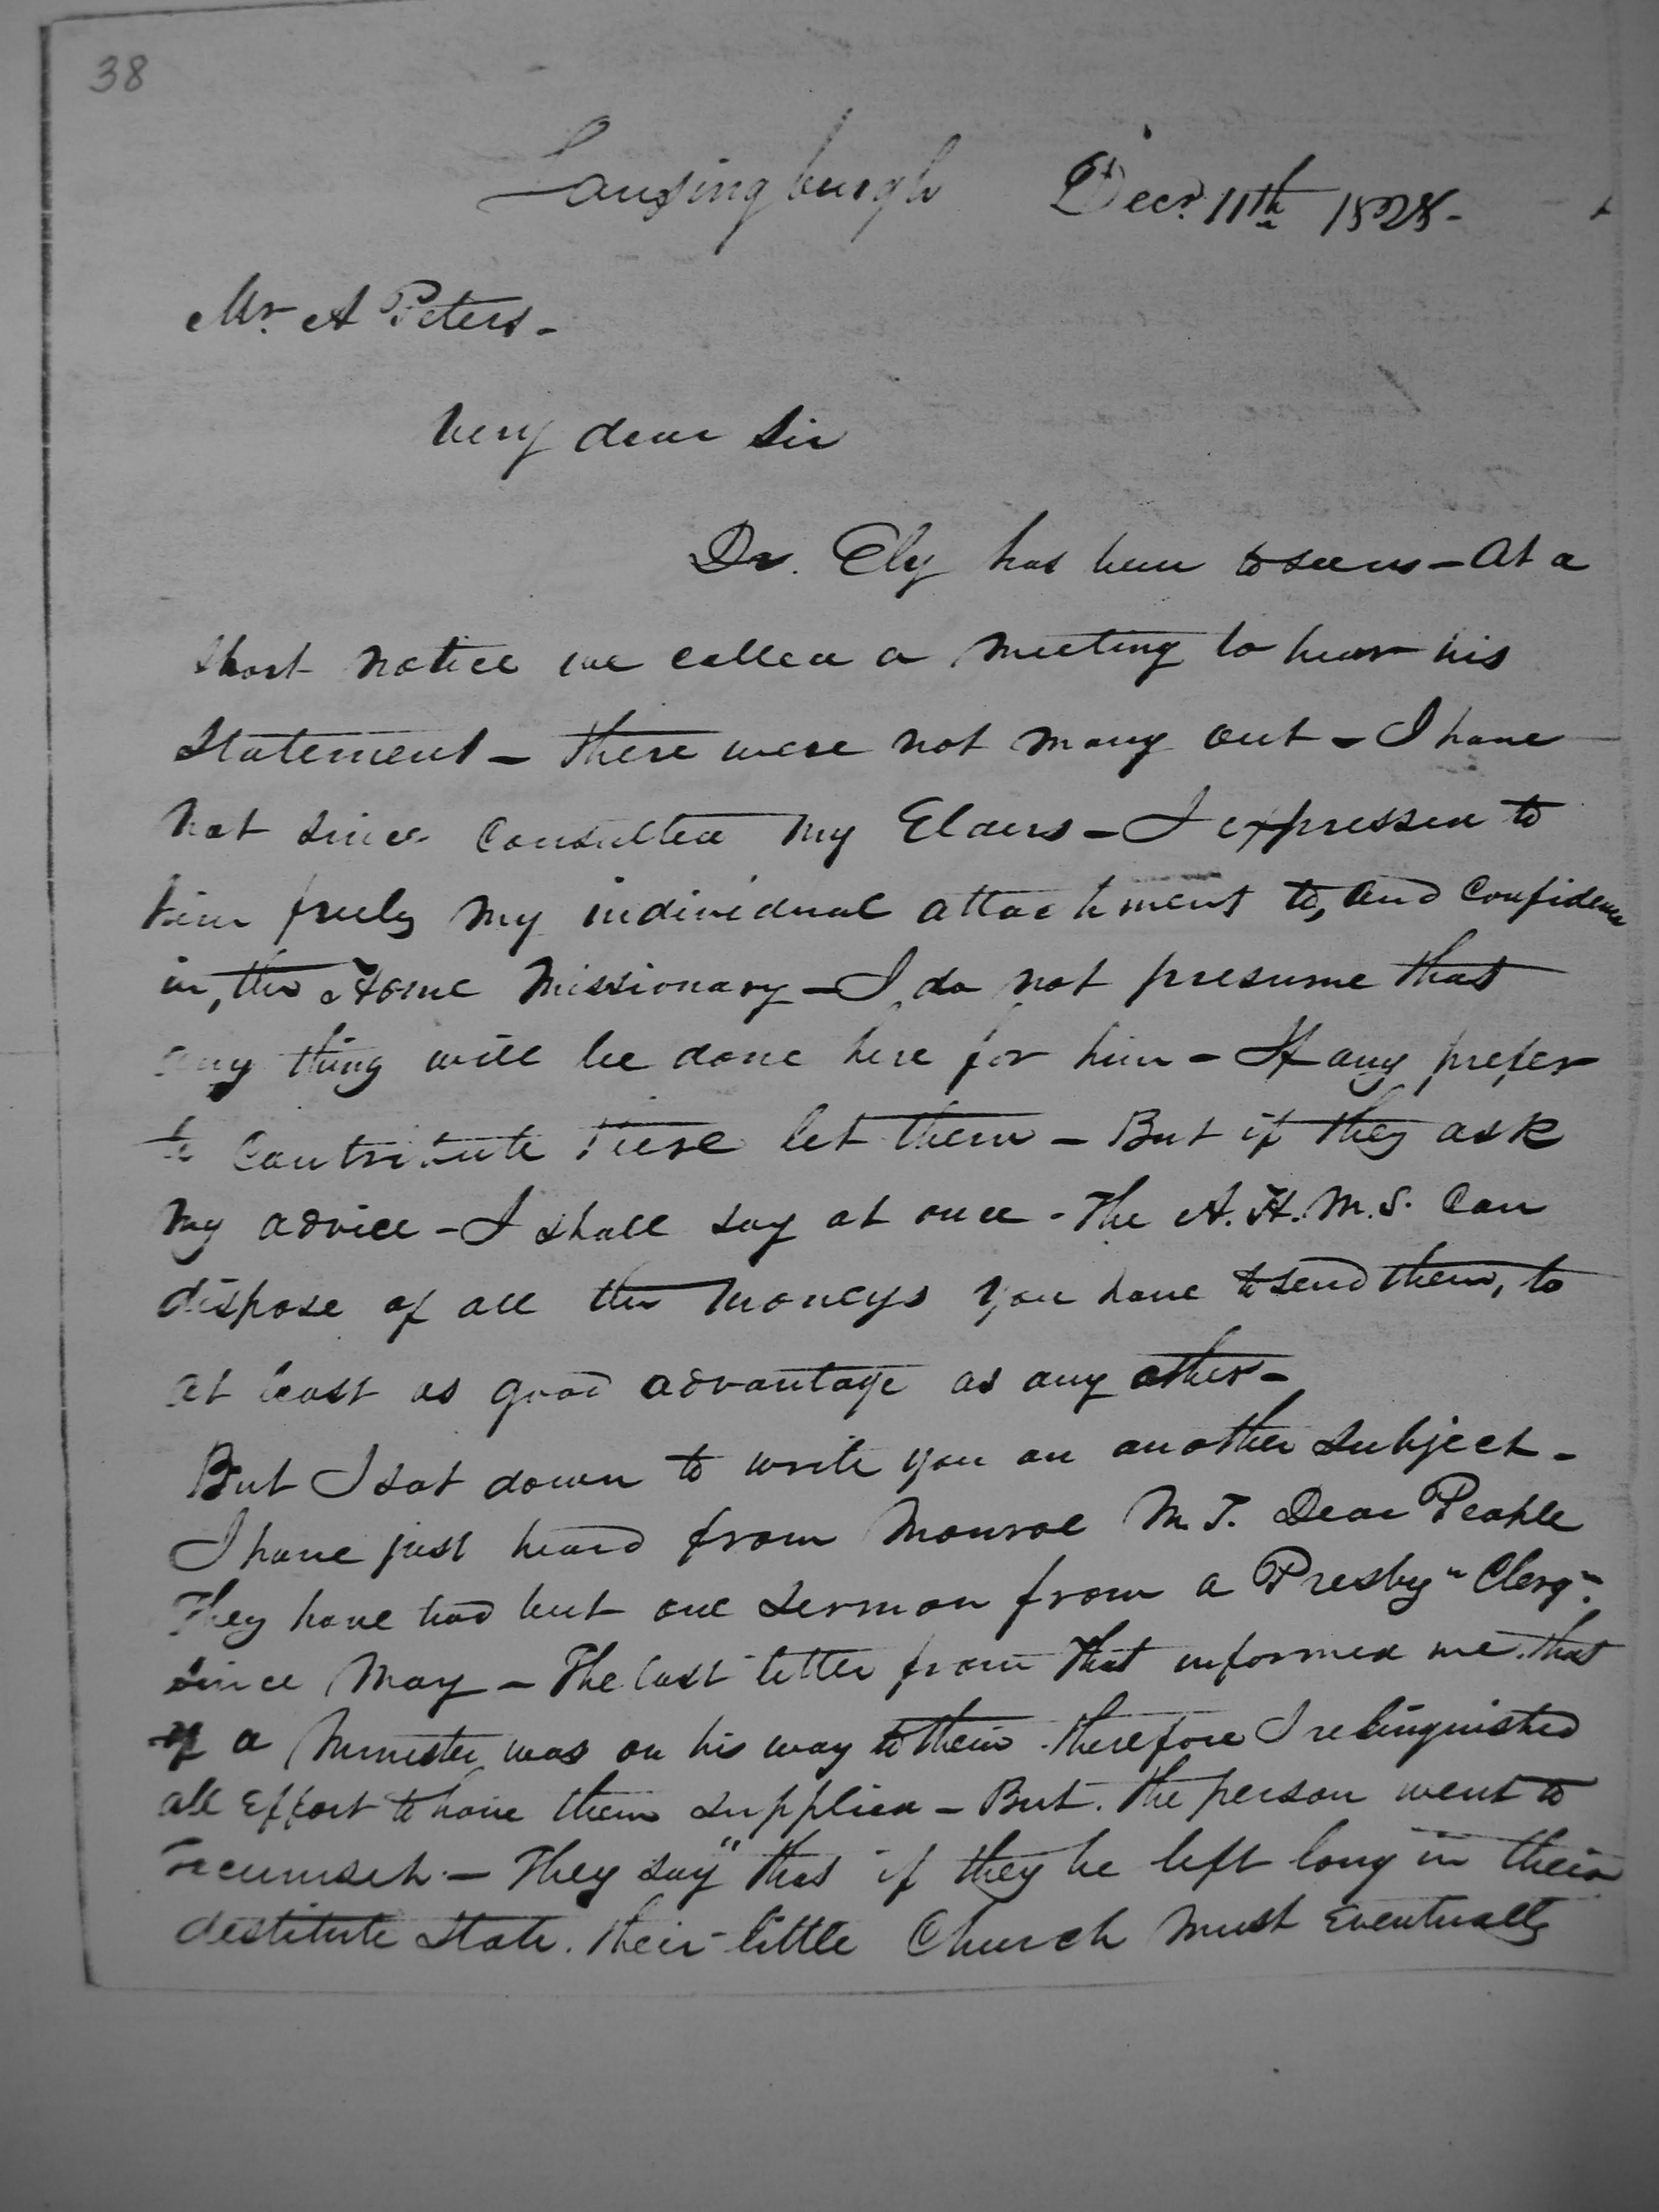 38
Lansingburgh Decr. 11th 1828-
Mr. A Peters-
Very dear Sir
Dr. Ely has been to see us - At a
short notice we called a meeting to hear his
Statement - there were not many out - I have
not since consulted my Elders - I expressed to
him freely my individual attachment to, and confidence
in, the Home Missionary - I do not presume that
any thing will be done here for him - If any prefer
to contribute these let them - But if they ask
my advice - I shall say at once - The A. H. M. S. can
dispose of all the moneys you have to send them, to
at least as good advantage as any other -
But I sat down to write you on another subject -
I have just heard from Monroe M. T. Dear People
They have had but one Sermon from a Presbyn Clergn.
since May - The last letter from that informed me that
a Minister was on his way to them. therefore I relinquished
all effort to have them supplied - But. the person went to
Tecumseh. - They say "that if they be left long in their
destitute State. their little Church must eventually